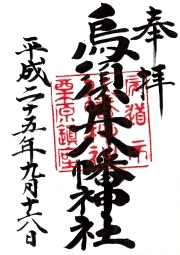 奉拝
烏須井八幡神社
平成二十五年九月十六日
栗原鎮座